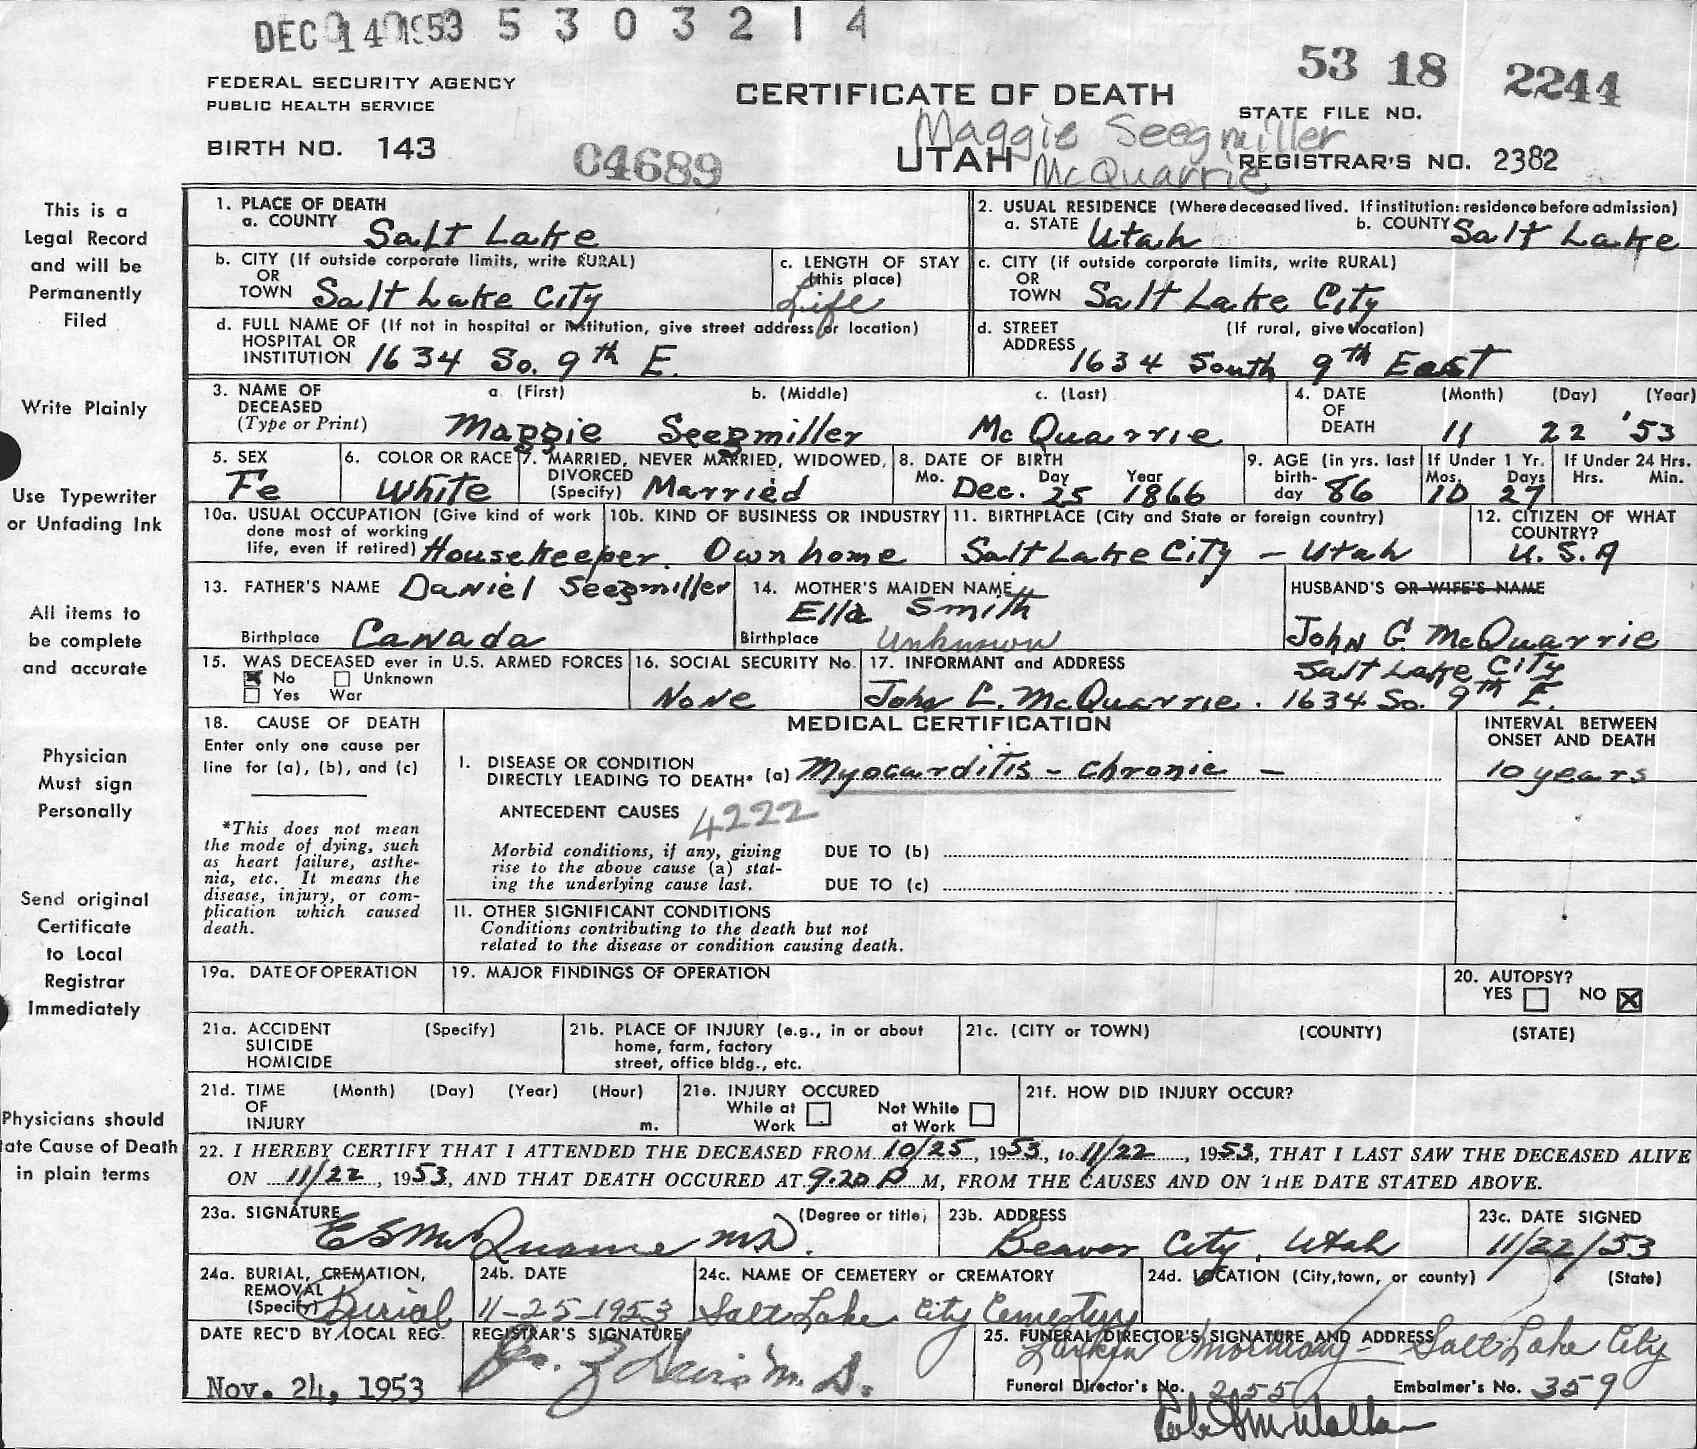 DEC 14 1953 5 3 0 3 2 1 4
53 18 2244
FEDERAL SECURITY AGENCY
PUBLIC HEALTH SERVICE
CERTIFICATE OF DEATH
STATE FILE NO.
Maggie Seegmiller
BIRTH NO. 143
C4689
UTAH
McQuarrie
REGISTRAR'S NO. 2382
This is a
Legal Record
and will be
Permanently
Filed
Write Plainly
Use Typewriter
or Unfading Ink
All items to
be complete
and accurate
Physician
Must sign
Personally
Send original
Certificate
to Local
Registrar
Immediately
Physicians should
ate Cause of Death
in plain terms
1. PLACE OF DEATH
a. COUNTY Salt Lake
2. USUAL RESIDENCE (Where deceased lived. If institution: residence before admission)
a. STATE Utah b. COUNTY Salt Lake
b. CITY (If outside corporate limits, write RURAL)
OR
TOWN Salt Lake City
c. LENGTH OF STAY
(this place)
Life
c. CITY (If outside corporate limits, write RURAL)
OR
TOWN Salt Lake City
d. FULL NAME OF (If not in hospital or institution, give street address or location)
HOSPITAL OR
INSTITUTION 1634 So. 9th E.
d. STREET (If rural, give location)
ADDRESS 1634 South 9th East
3. NAME OF DECEASED
(Type or Print)
a. (First) b. (Middle) c. (Last)
Maggie Seegmiller McQuarrie
4. DATE OF DEATH
(Month) (Day) (Year)
11 22 '53
5. SEX
Fe
6. COLOR OR RACE
White
7. MARRIED, NEVER MARRIED, WIDOWED,
DIVORCED
(Specify) Married
8. DATE OF BIRTH
Mo. Day Year
Dec. 25 1866
9. AGE (in yrs. last
birth-
day 86
If Under 1 Yr.
Mos. Days
10 27
If Under 24 Hrs.
Hrs. Min.
10a. USUAL OCCUPATION (Give kind of work
done most of working
life, even if retired) Housekeeper.
10b. KIND OF BUSINESS OR INDUSTRY
Own home
11. BIRTHPLACE (City and State or foreign country)
Salt Lake City - Utah
12. CITIZEN OF WHAT
COUNTRY?
U.S.A
13. FATHER'S NAME Daniel Seegmiller
Birthplace Canada
14. MOTHER'S MAIDEN NAME
Ella Smith
Birthplace Unknown
HUSBAND'S OR WIFE'S NAME
John G McQuarrie
15. WAS DECEASED ever in U.S. ARMED FORCES
No Unknown
Yes War
16. SOCIAL SECURITY No.
None
17. INFORMANT and ADDRESS
Salt Lake City
John L. McQuarrie. 1634 So. 9th E.
18. CAUSE OF DEATH
Enter only one cause per
line for (a), (b), and (c)
*This does not mean
the mode of dying, such
as heart failure, asthe-
nia, etc. It means the
disease, injury, or com-
plication which caused
death.
MEDICAL CERTIFICATION
INTERVAL BETWEEN
ONSET AND DEATH
I. DISEASE OR CONDITION
DIRECTLY LEADING TO DEATH* (a) Myocarditis - Chronic -
10 years
ANTECEDENT CAUSES 4222
Morbid conditions, if any, giving
rise to the above cause (a) stat-
ing the underlying cause last.
DUE TO (b)
DUE TO (c)
II. OTHER SIGNIFICANT CONDITIONS
Conditions contributing to the death but not
related to the disease or condition causing death.
19a. DATE OF OPERATION
19. MAJOR FINDINGS OF OPERATION
20. AUTOPSY?
YES NO
21a. ACCIDENT (Specify)
SUICIDE
HOMICIDE
21b. PLACE OF INJURY (e.g., in or about
home, farm, factory
street, office bldg., etc.
21c. (CITY or TOWN) (COUNTY) (STATE)
21d. TIME (Month) (Day) (Year) (Hour)
OF
INJURY m.
21e. INJURY OCCURED
While at Work
Not While at Work
21f. HOW DID INJURY OCCUR?
22. I HEREBY CERTIFY THAT I ATTENDED THE DECEASED FROM 10/25, 1953, to 11/22, 1953, THAT I LAST SAW THE DECEASED ALIVE
ON 11/22, 1953, AND THAT DEATH OCCURED AT 9.20 P M, FROM THE CAUSES AND ON THE DATE STATED ABOVE.
23a. SIGNATURE (Degree or title)
E S McQuarrie M.D.
23b. ADDRESS
Beaver City, Utah
23c. DATE SIGNED
11/22/53
24a. BURIAL, CREMATION,
REMOVAL
(Specify) Burial
24b. DATE
11-25-1953
24c. NAME OF CEMETERY or CREMATORY
Salt Lake City Cemetery
24d. LOCATION (City, town, or county) (State)
DATE REC'D BY LOCAL REG.
Nov. 24, 1953
REGISTRAR'S SIGNATURE
M.D.
25. FUNERAL DIRECTOR'S SIGNATURE AND ADDRESS
Larkin Mortuary - Salt Lake City
Funeral Director's No. 255 Embalmer's No. 359